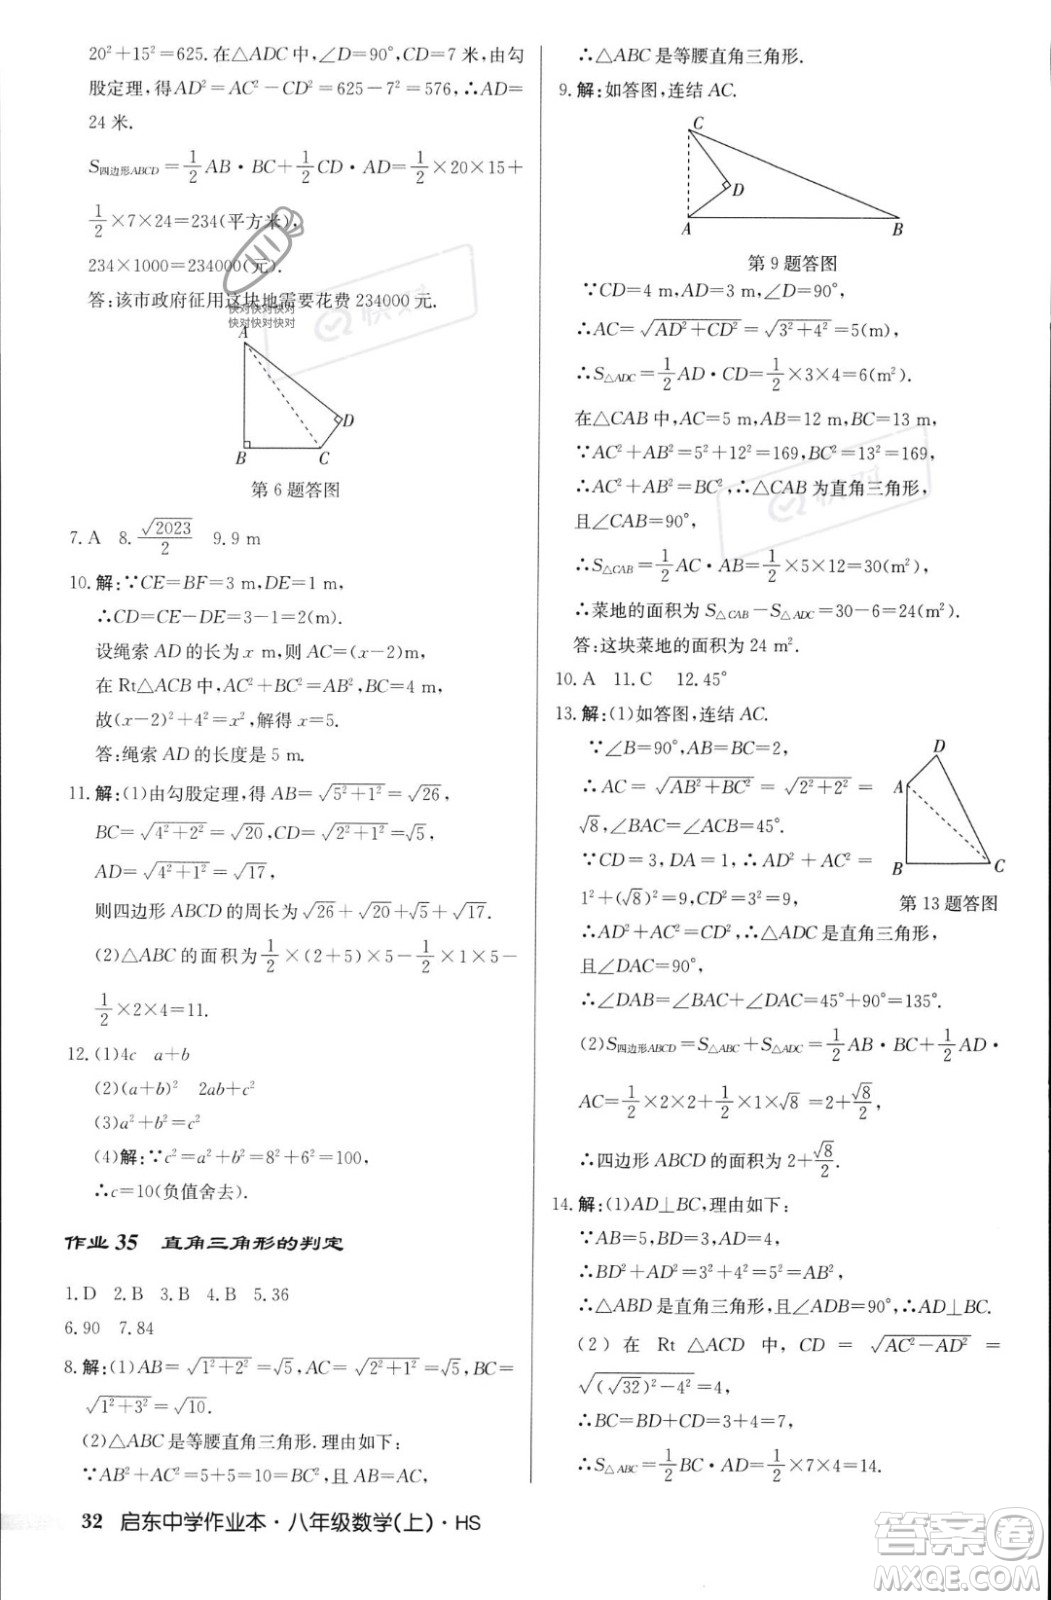 20²+15²=625.在△ADC中,∠D=90°,CD=7米,由勾
股定理,得AD²=AC²-CD²=625-7²=576,∴AD=
24米.
S四边形ABCD=1/2 AB·BC+1/2 CD·AD=1/2×20×15+
1/2×7×24=234(平方米),
234×1000=234000(元).
答:该市政府征用这块地需要花费234000元.
快对快对快对
快对快对快对
A
D
B
C
第6题答图
7.A 8.√2023/2 9.9 m
10.解:∵CE=BF=3 m,DE=1 m,
∴CD=CE-DE=3-1=2(m).
设绳索AD的长为x m,则AC=(x-2)m,
在Rt△ACB中,AC²+BC²=AB²,BC=4 m,
故(x-2)²+4²=x²,解得x=5.
答:绳索AD的长度是5 m.
11.解:(1)由勾股定理,得AB=√(5²+1²)=√26,
BC=√(4²+2²)=√20,CD=√(2²+1²)=√5,
AD=√(4²+1²)=√17,
则四边形ABCD的周长为√26+√20+√5+√17.
(2)△ABC的面积为1/2×(2+5)×5-1/2×1×5-
1/2×2×4=11.
12.(1)4c a+b
(2)(a+b)² 2ab+c²
(3)a²+b²=c²
(4)解:∵c²=a²+b²=8²+6²=100,
∴c=10(负值舍去).
作业35 直角三角形的判定
1.D 2.B 3.B 4.B 5.36
6.90 7.84
8.解:(1)AB=√(1²+2²)=√5,AC=√(2²+1²)=√5,BC=
√(1²+3²)=√10.
(2)△ABC是等腰直角三角形.理由如下:
∵AB²+AC²=5+5=10=BC²,且AB=AC,
∴△ABC是等腰直角三角形.
9.解:如答图,连结AC.
C
D
A
B
第9题答图
∵CD=4 m,AD=3 m,∠D=90°,
∴AC=√(AD²+CD²)=√(3²+4²)=5(m),
∴S△ADC=1/2 AD·CD=1/2×3×4=6(m²).
在△CAB中,AC=5 m,AB=12 m,BC=13 m,
∵AC²+AB²=5²+12²=169,BC²=13²=169,
∴AC²+AB²=BC²,∴△CAB为直角三角形,
且∠CAB=90°,
∴S△CAB=1/2 AC·AB=1/2×5×12=30(m²),
∴菜地的面积为S△CAB-S△ADC=30-6=24(m²).
答:这块菜地的面积为24 m².
10.A 11.C 12.45°
13.解:(1)如答图,连结AC.
∵∠B=90°,AB=BC=2,
∴AC=√(AB²+BC²)=√(2²+2²)=
√8,∠BAC=∠ACB=45°.
∵CD=3,DA=1,∴AD²+AC²=
1²+(√8)²=9,CD²=3²=9,
∴AD²+AC²=CD²,∴△ADC是直角三角形,
且∠DAC=90°,
∴∠DAB=∠BAC+∠DAC=45°+90°=135°.
D
A
B
C
第13题答图
(2)S四边形ABCD=S△ABC+S△ADC=1/2 AB·BC+1/2 AD·
AC=1/2×2×2+1/2×1×√8=2+√8/2,
∴四边形ABCD的面积为2+√8/2.
14.解:(1)AD⊥BC,理由如下:
∵AB=5,AD=4,BD=3,
∴BD²+AD²=3²+4²=5²=AB²,
∴△ABD是直角三角形,∠ADB=90°,∴AD⊥BC.
(2)在Rt△ACD中,CD=√(AC²-AD²)=
√((√32)²-4²)=4,
∴BC=BD+CD=3+4=7,
∴S△ABC=1/2 BC·AD=1/2×7×4=14.
32 启东中学作业本·八年级数学(上)·HS
快对
快对
答案圈
MXQE.COM